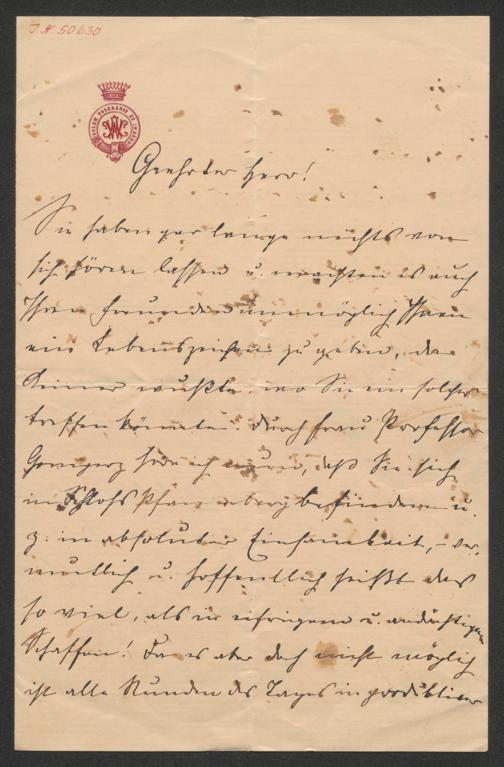 J.N. 50630
Geehrter Herr!
Sie haben gar lange nichts von
sich hören lassen u. machten es auch
Ihren Freunden unmöglich Ihnen
ein Lebenszeichen zu geben, da
Keiner wußte, wo Sie ein solches
treffen könnte. Durch Frau Professor
Gomperz höre ich nun, daß Sie sich
in Schloß Pfannberg befinden u.
z: in absoluter Einsamkeit, – ver-
mutlich u. hoffentlich heißt das
so viel, als in eifrigem u. andächtigem
Schaffen! Da es aber doch nicht möglich
ist alle Stunden des Tages in produktiver